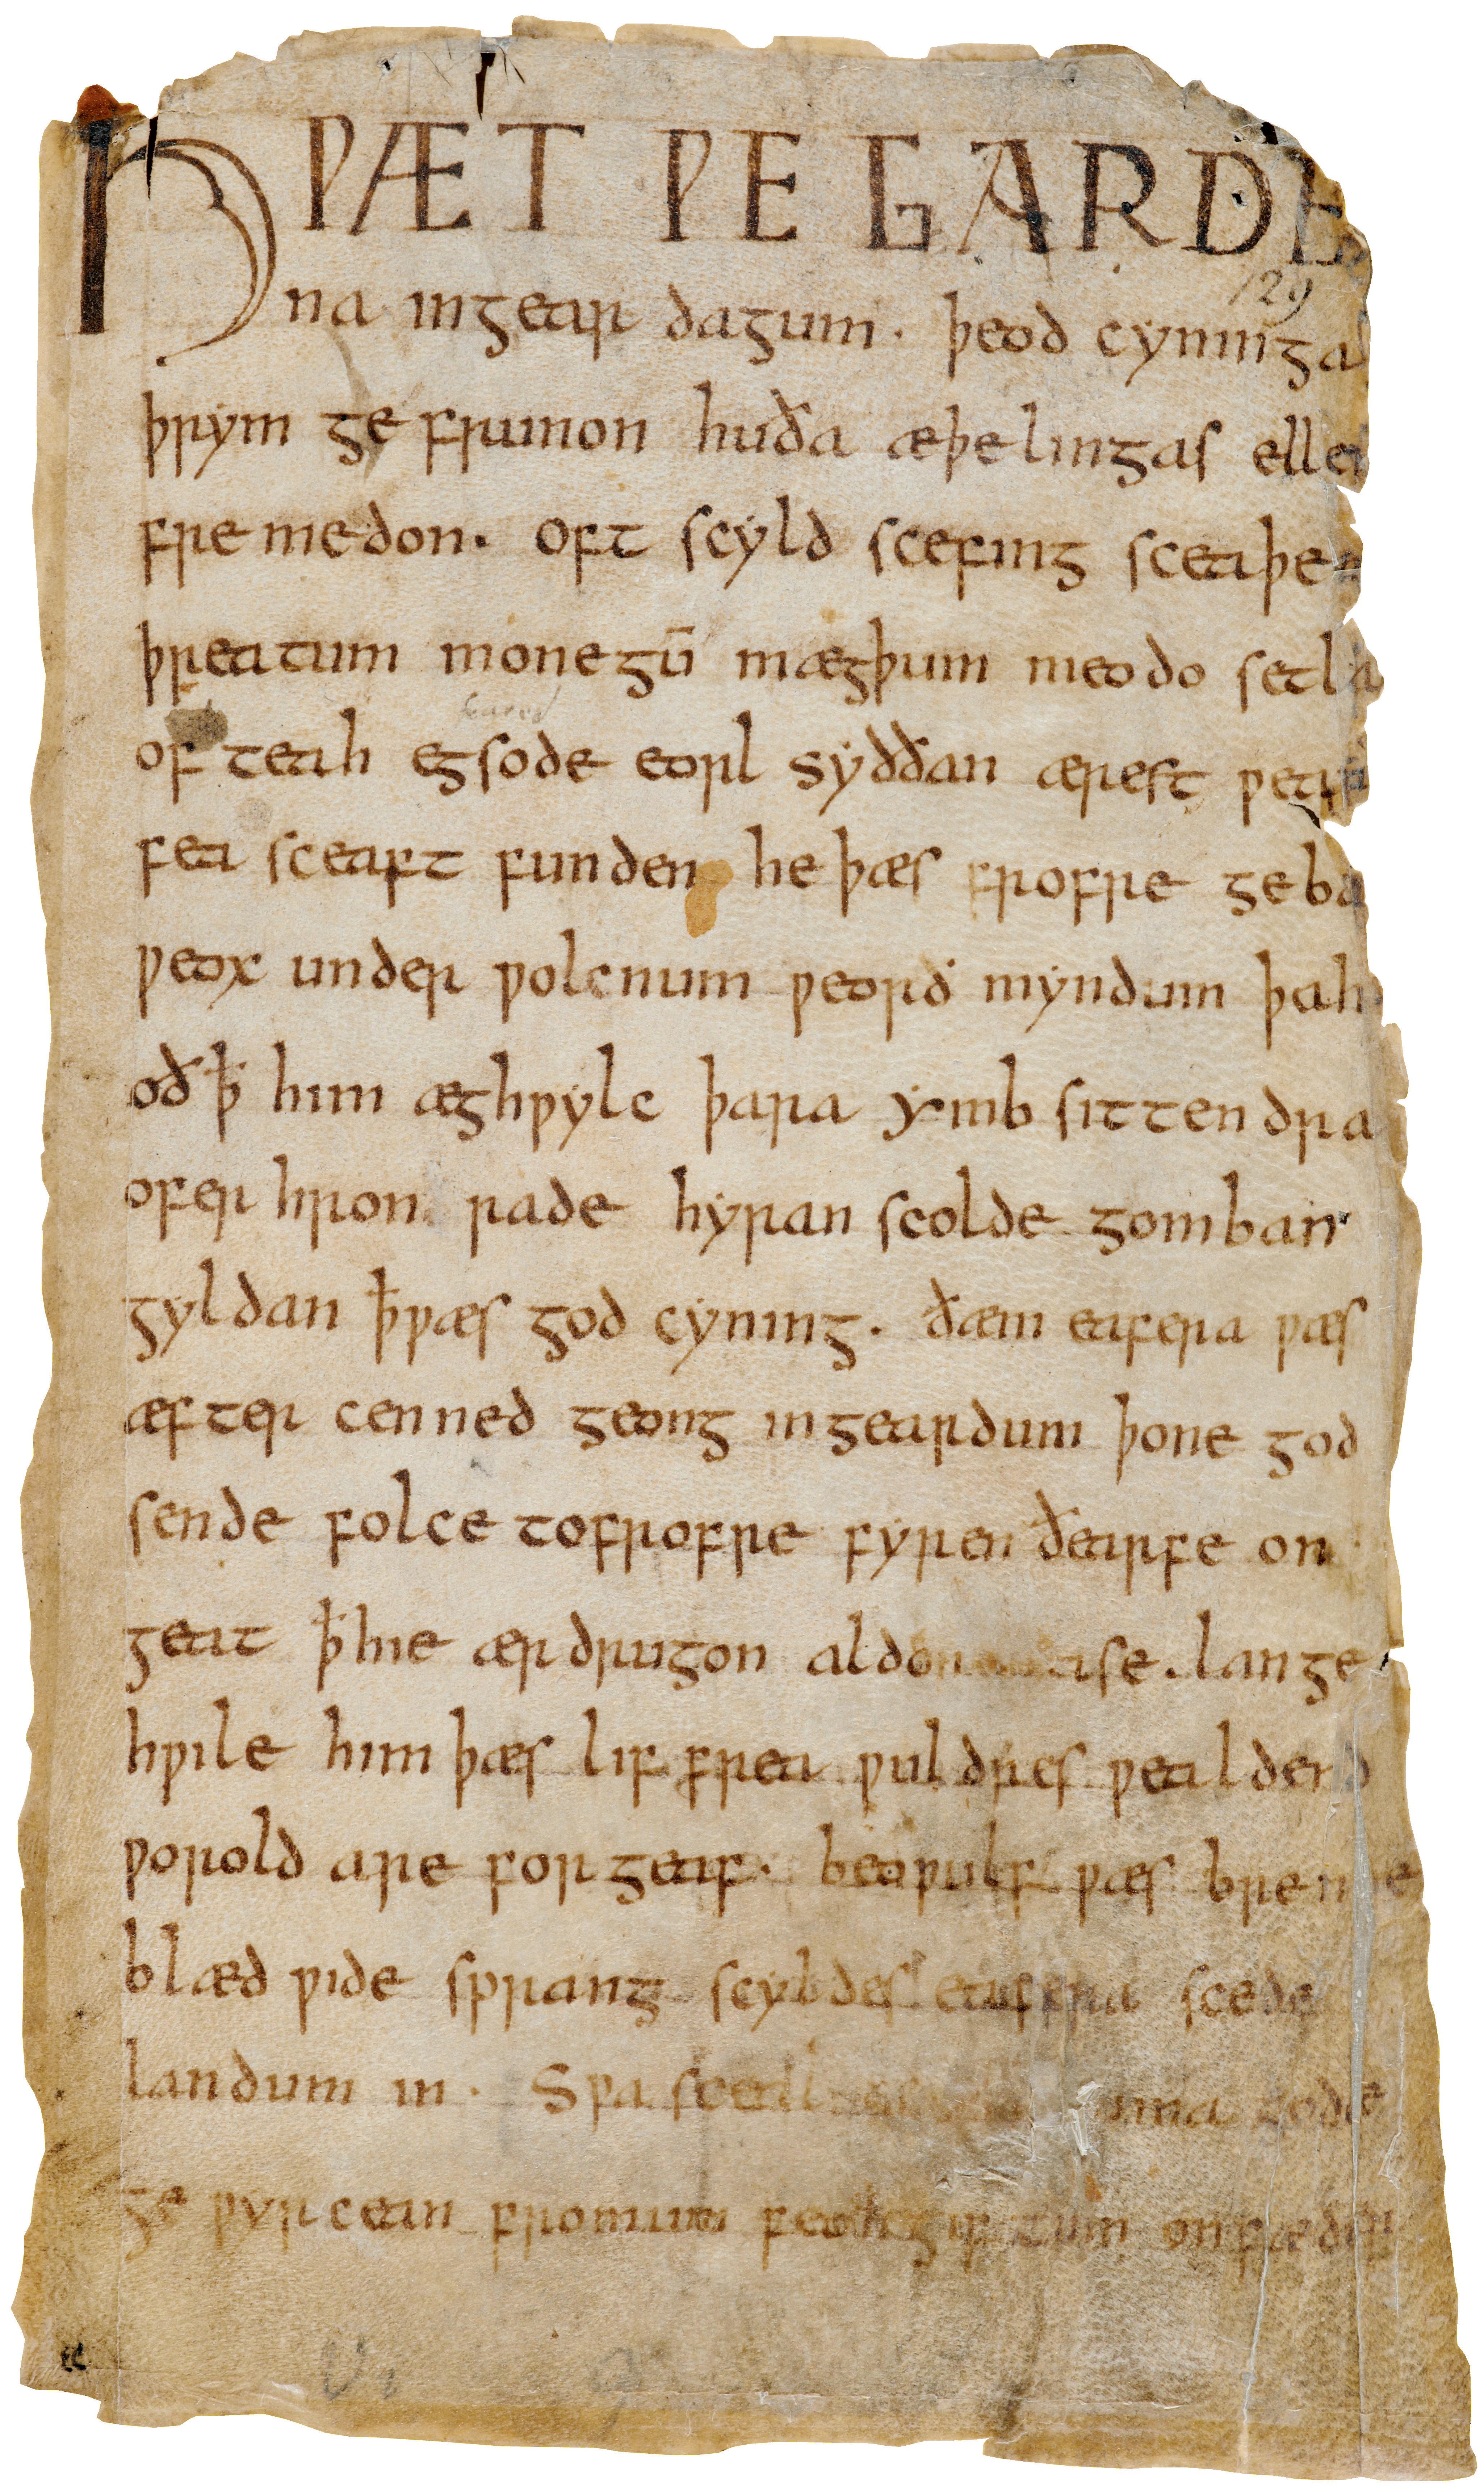 HǷÆT ǷE GARDE
129
na in gear dagum . þeod cyninga
þrym ge frunon huða æþelingas ellen
fre medon . oft scyld scefing sceaþe
þreatum monegū mægþum meodo setla
of teah egsode eorl syððan ærest ƿear
fea sceaft funden he þæs frofre geba
ƿeox under ƿolcnum ƿeorð myndum þah
oðꝥ him æghƿylc þara ymb sittendra
ofer hron rade hyran scolde gomban
gyldan ꝥƿæs god cyning . ðæm eafera ƿæs
æfter cenned geong in geardum þone god
sende folce tofrofre fyren ðearfe on
geat ꝥhie ær drugon aldor ase . lange
hƿile him þæs lif frea ƿuldres ƿealdend
ƿorold are for geaf . beoƿulf ƿæs breme
blæd ƿide sprang scyldes eafera scede
landum in . Sƿa uma gode
ge ƿyrcean fromum feoh giftum on fæder